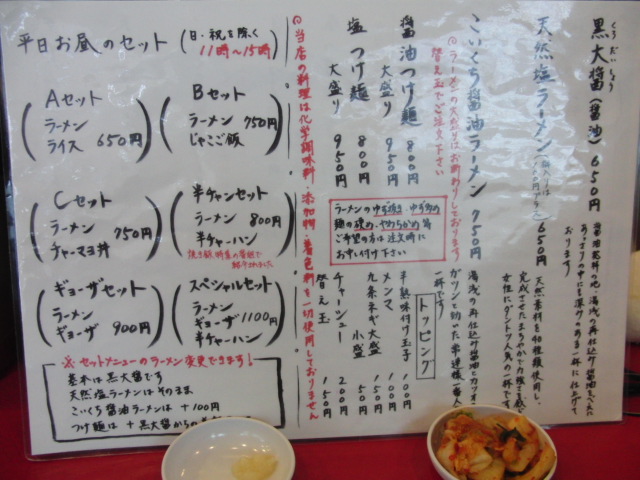 黒大醤（醤油） 650円
くろだいしょう
醤油発祥の地・湯浅の再仕込み醤油をベースに
あっさりの中にも深みのある一杯に仕上げて
おります
天然塩ラーメン 650円
天然素材を10種類使用し、
完成させたまろやかで力強さ
女性にダントツ人気の一杯です
こいくち醤油ラーメン 750円
湯浅の再仕込み醤油とカツオ
ガツンと効いた常連様一番人
一杯です
◎ラーメンの大盛りはお断りしております
替え玉でご注文下さい
醤油つけ麺 800円
大盛り 950円
塩つけ麺 800円
大盛り 950円
ラーメンのゆず抜き、ゆず多め
麺の硬め・やわらかめ等
ご希望の方は注文時に
お申し付け下さい
トッピング
半熟味付け玉子 100円
メンマ 100円
九条ネギ大盛 150円
小盛 50円
チャーシュー 200円
替え玉 150円
◎当店の料理は化学調味料・添加物・着色料を一切使用しておりません
平日お昼のセット（日・祝を除く
11時〜15時）
Aセット
ラーメン
ライス 650円
Bセット
ラーメン 750円
じゃこご飯
Cセット
ラーメン 750円
チャーマヨ丼
半チャンセット
ラーメン 800円
半チャーハン
ギョーザセット
ラーメン
ギョーザ 900円
スペシャルセット
ラーメン
ギョーザ 1100円
半チャーハン
※セットメニューのラーメン変更できます！
基本は黒大醤です
天然塩ラーメンはそのまま
こいくち醤油ラーメンは +100円
つけ麺は +黒大醤からの